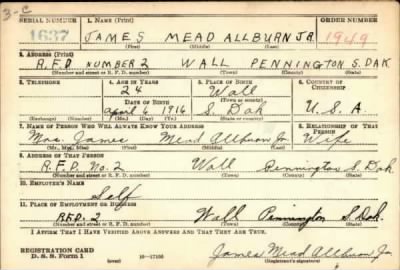 3-C
SERIAL NUMBER 1. Name (Print) ORDER NUMBER
1637 JAMES MEAD ALLBURN JR. 1949
(First) (Middle) (Last)
2. Address (Print)
R.F.D NUMBER 2 WALL PENNINGTON S. DAK
(Number and street or R. F. D. number) (Town) (County) (State)
3. Telephone 4. Age in Years 5. Place of Birth 6. Country of Citizenship
24 Wall
Date of Birth (Town or county)
April 6 1916 S. Dak U.S.A.
(Exchange) (Number) (Mo.) (Day) (Yr.) (State or country)
7. Name of Person Who Will Always Know Your Address Relationship of That Person
Mrs. James Mead Allburn Jr Wife
(Mr., Mrs., Miss) (First) (Middle) (Last)
9. Address of That Person
R.F.D. No. 2 Wall Pennington S. Dak
(Number and street or R. F. D. number) (Town) (County) (State)
10. Employer's Name
Self
11. Place of Employment or Business
R.F.D. 2 Wall Pennington S. Dak.
(Number and street or R. F. D. number) (Town) (County) (State)
I Affirm That I Have Verified Above Answers and That They Are True.
REGISTRATION CARD
D. S. S. Form 1 (over) 16—17105
James Mead Allburn Jr
(Registrant's signature)